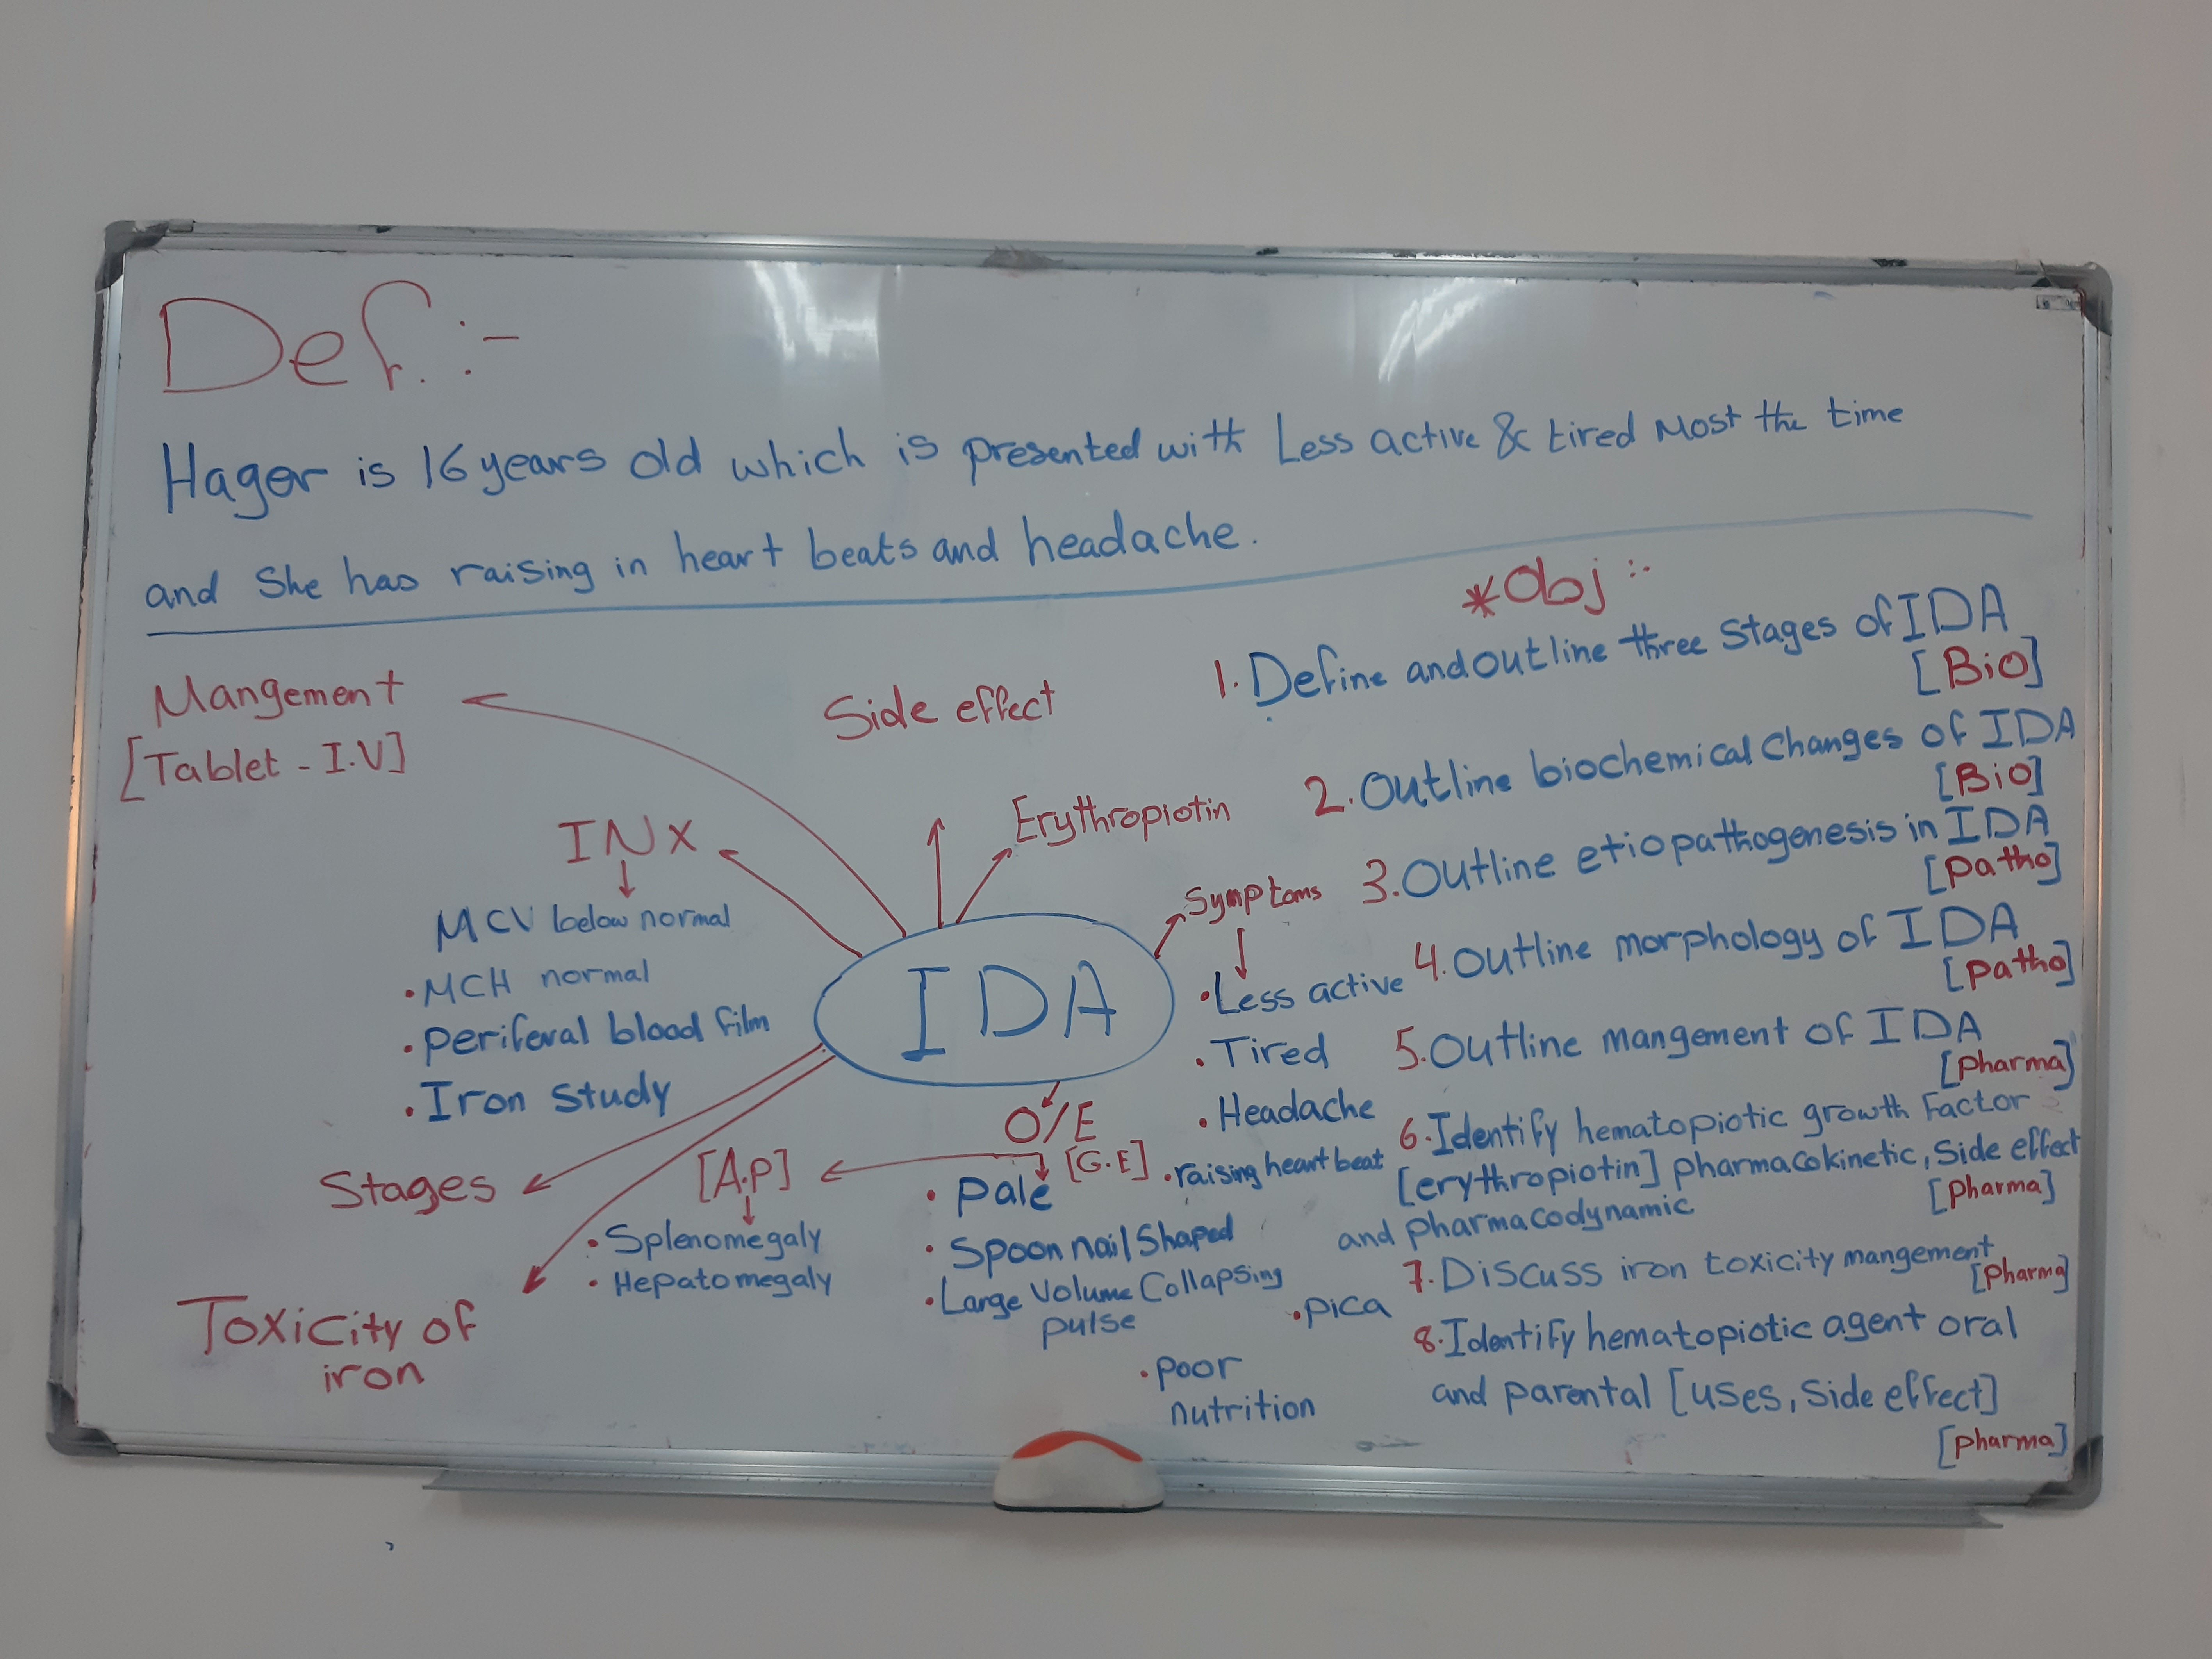 Def. :-
Hager is 16 years old which is presented with Less active & tired Most the time
and She has raising in heart beats and headache.
Mangement
[Tablet - I.V]
Side effect
Erythropiotin
INX
MCV below normal
• MCH normal
• Periferal blood film
• Iron study
IDA
Symptoms
• Less active
• Tired
• Headache
• raising heart beat
• pica
• poor
nutrition
O/E
[G.E]
• Pale
• Spoon nail Shaped
• Large Volume Collapsing
pulse
[A.P]
• Splenomegaly
• Hepatomegaly
Stages
Toxicity of
iron
*Obj :-
1. Define and outline three Stages of IDA
[Bio]
2. Outline biochemical Changes of IDA
[Bio]
3. Outline etiopathogenesis in IDA
[Patho]
4. Outline morphology of IDA
[Patho]
5. Outline mangement of IDA
[Pharma]
6. Identify hematopiotic growth Factor
[erythropiotin] pharmacokinetic, Side effect
and pharmacodynamic
[Pharma]
7. Discuss iron toxicity mangement
[Pharma]
8. Identify hematopiotic agent oral
and parental [uses, Side effect]
[Pharma]